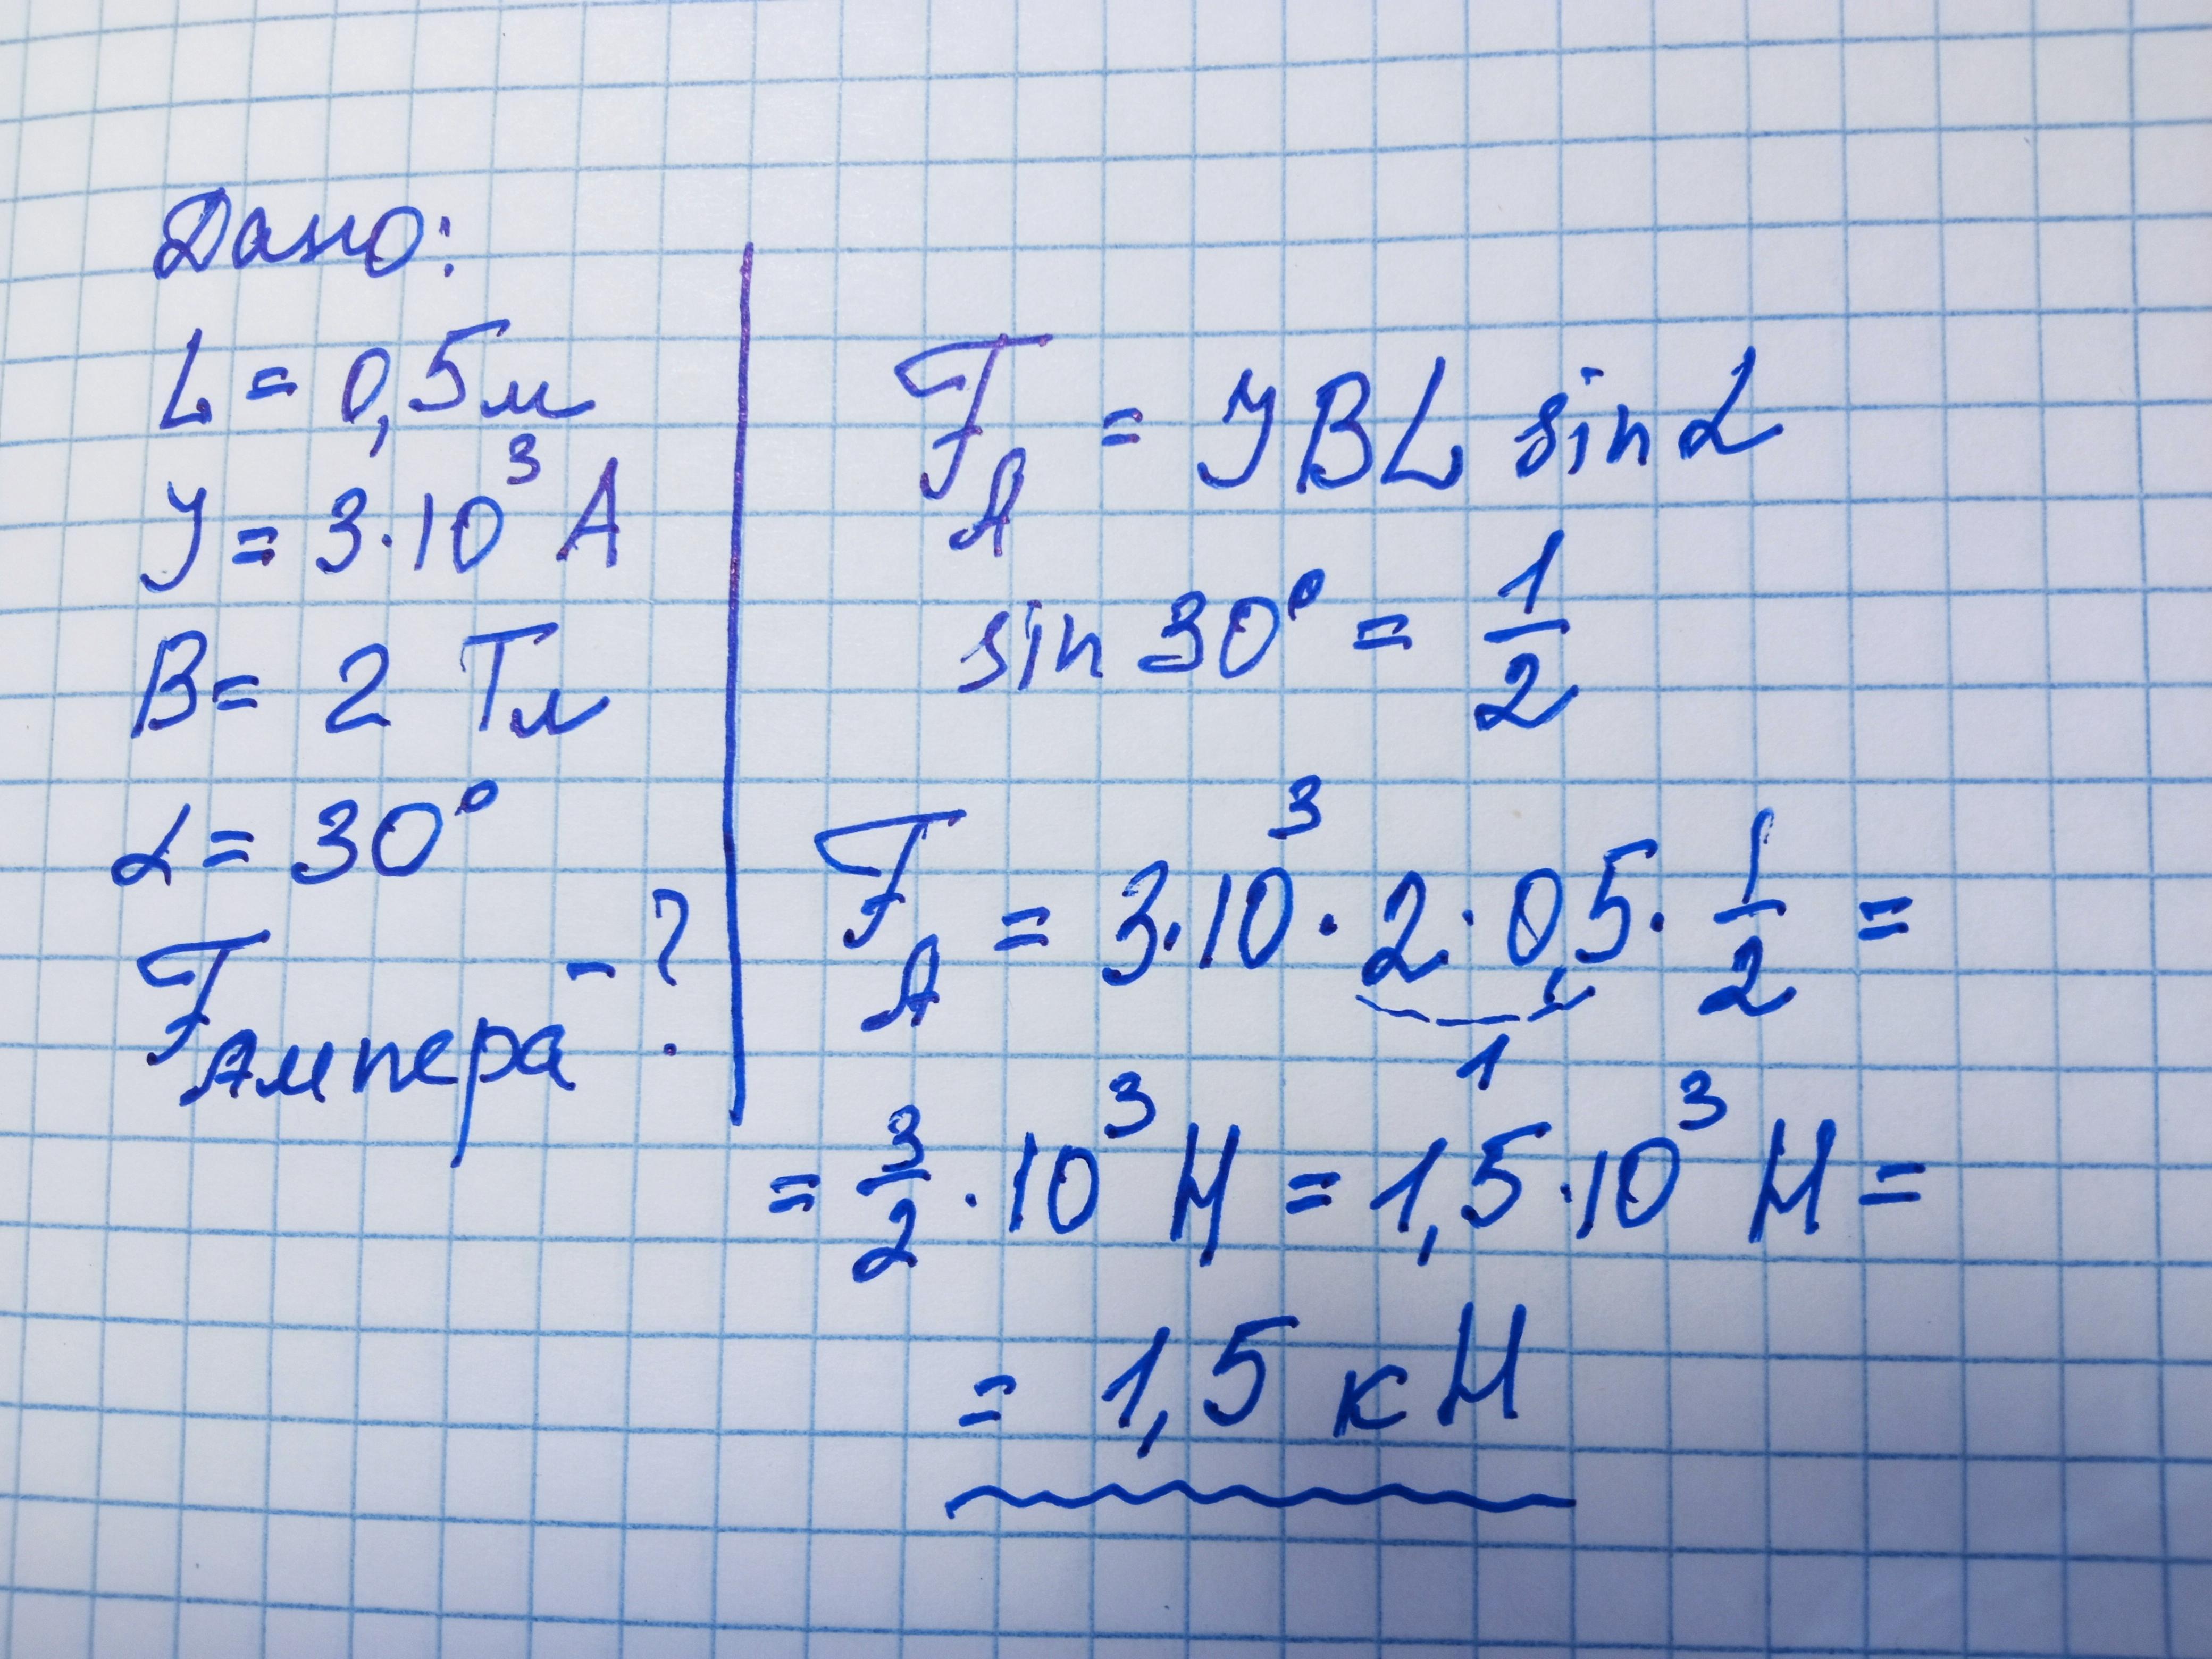 Дано:
L = 0,5 м
I = 3·10³ А
B = 2 Тл
α = 30°
F Ампера - ?
F_A = I B L sin α
sin 30° = 1/2
F_A = 3·10³ · 2 · 0,5 · 1/2 =
1
= 3/2 · 10³ Н = 1,5·10³ Н =
= 1,5 кН